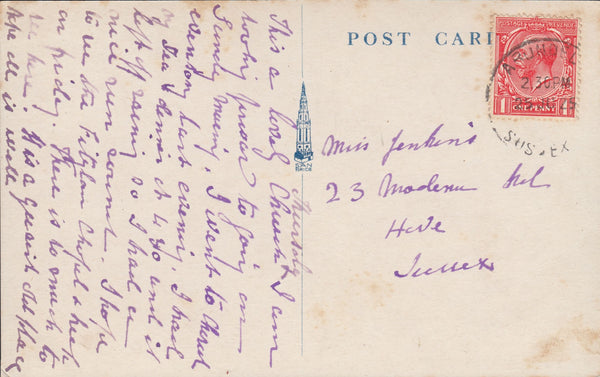 POST CARD
POSTAGE REVENUE
ARUNDEL
2.30 PM
SUSSEX
1 ONE PENNY
Miss Jenkins
23 Modena Rd
Hove
Sussex
Thursday
This a lovely Church & I am
looking forward to going on
Sunday Morn. I went to Church
evensong last evening. I had
my Tea & dinner at 4.30 and it
kept off raining so I had a
nice run round. I hope
to see the Fitzalan Chapel & Keep
on friday. There is so much to
see here. It is a quaint old place
Hope all is well.